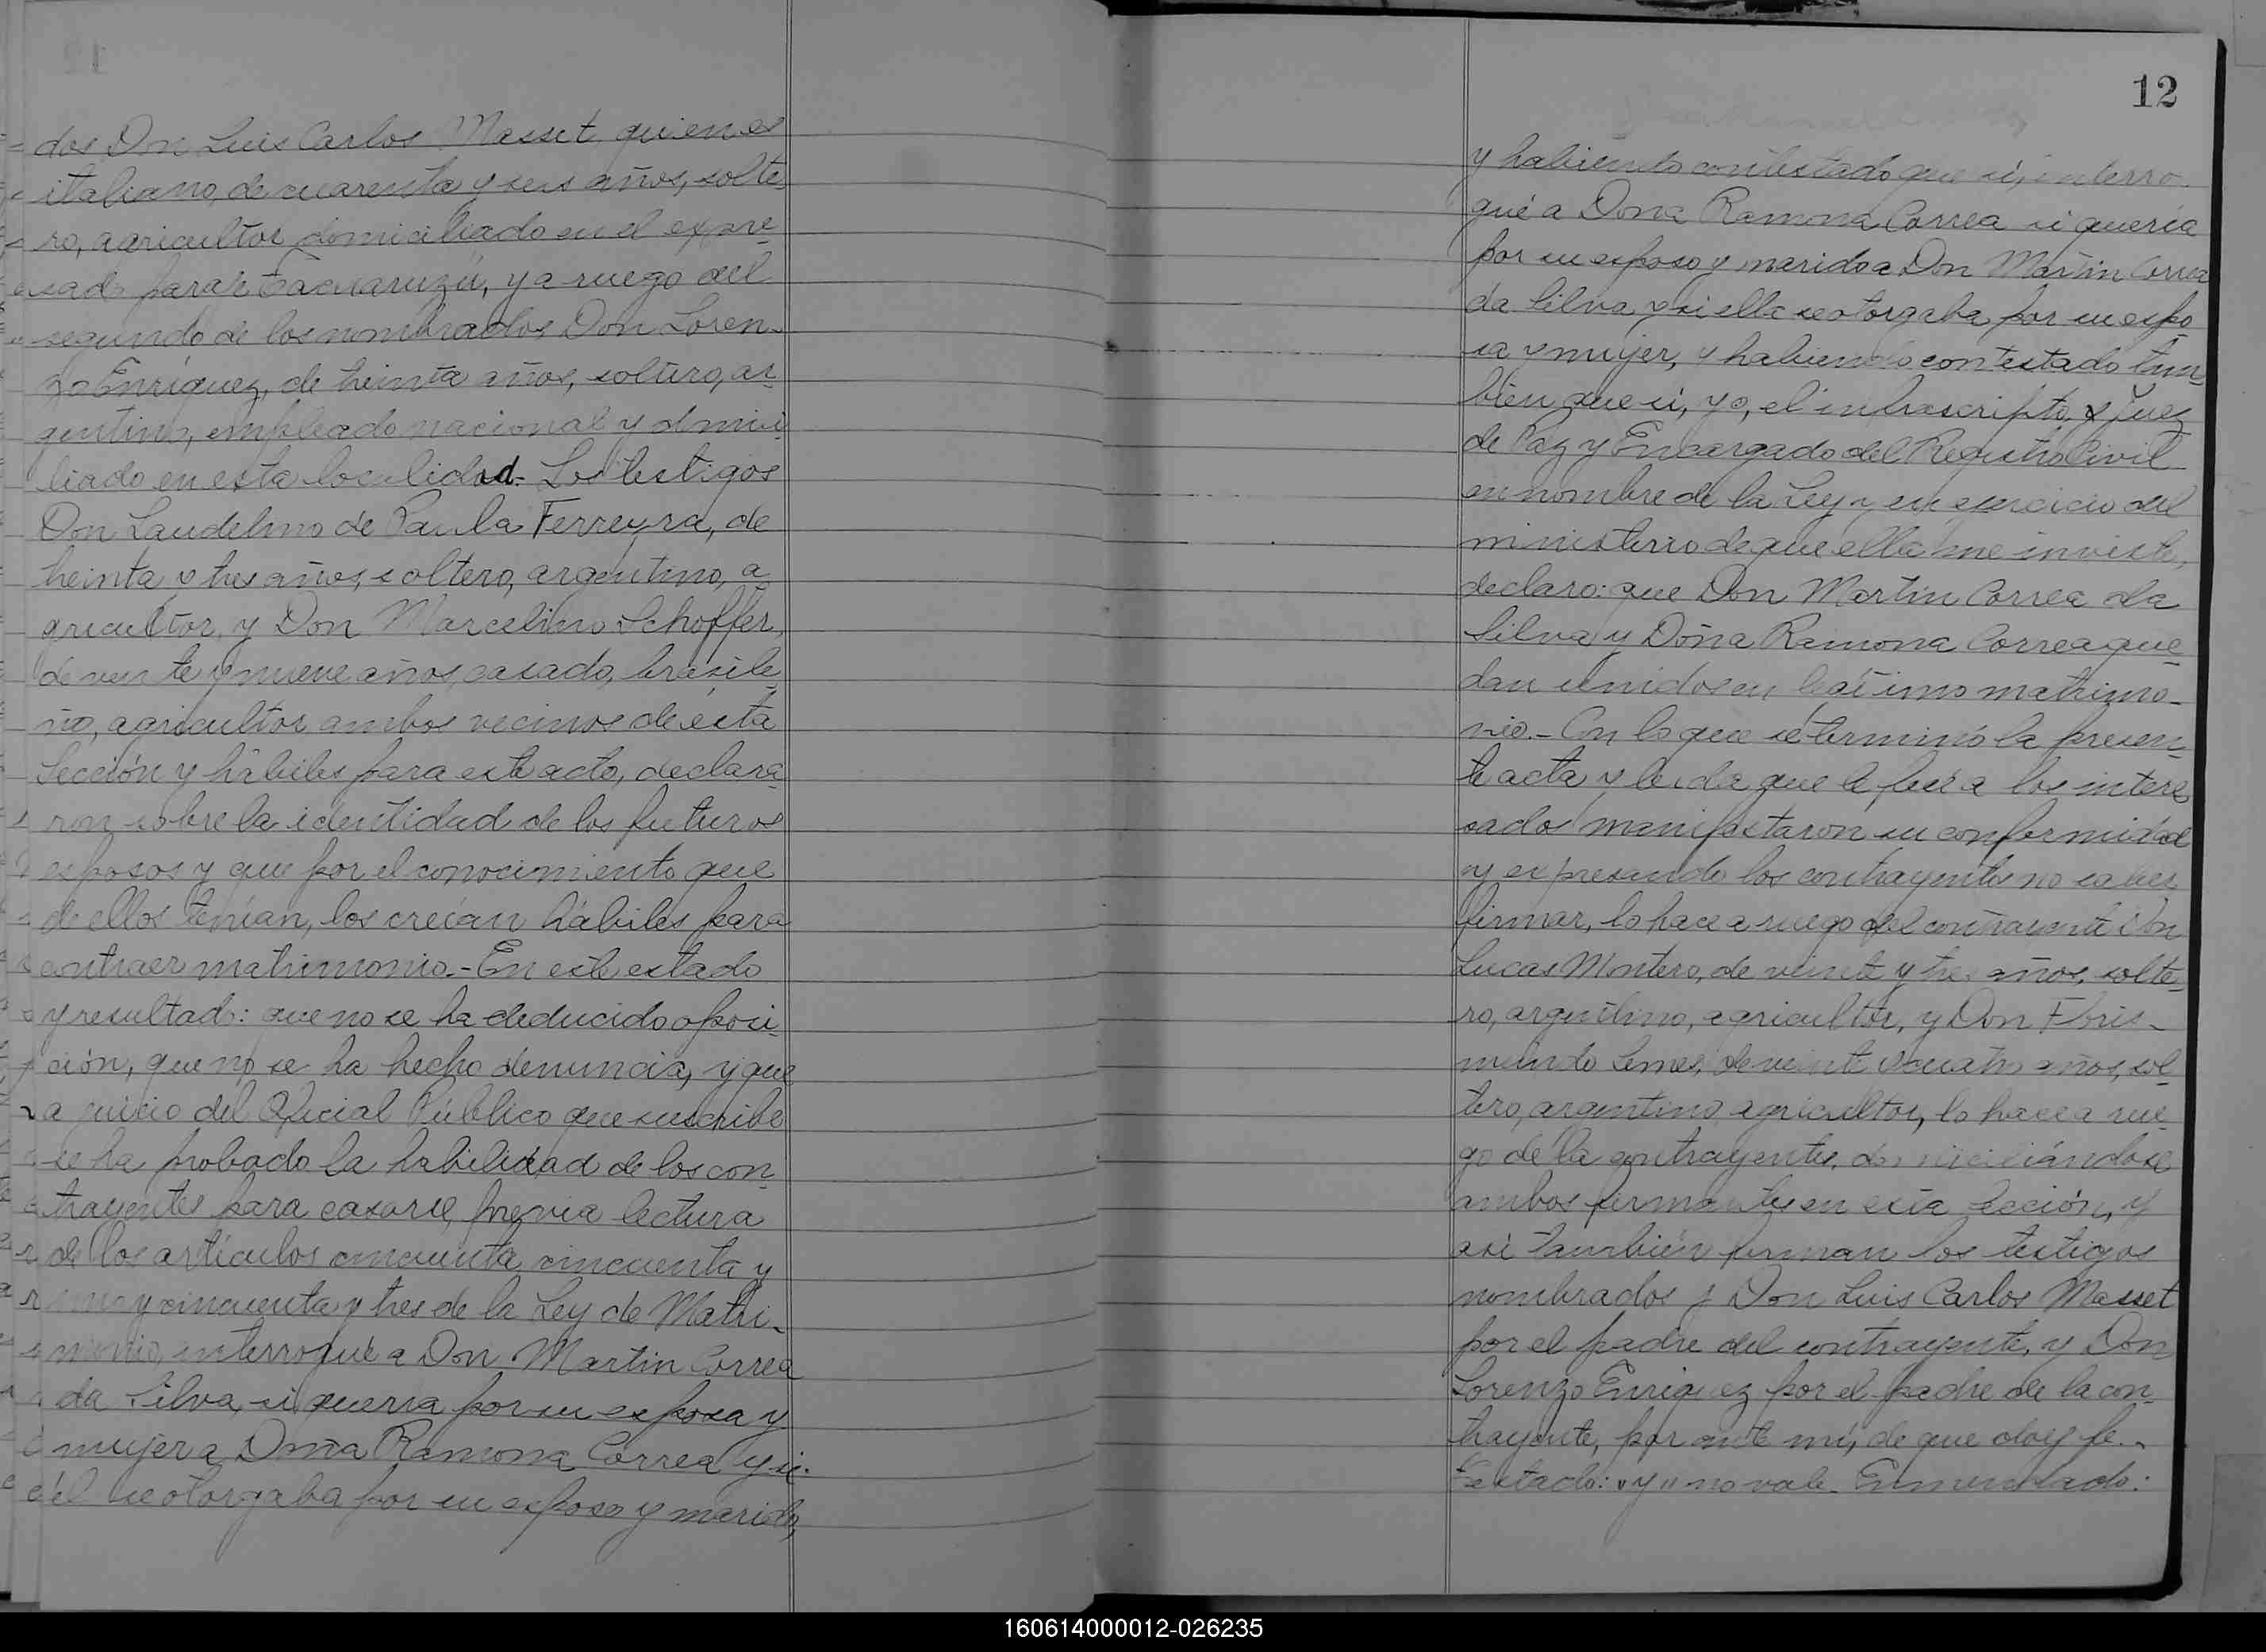 dos Don Luis Carlos Masset quien es
italiano, de cuarenta y seis años, solte
ro, agricultor domiciliado en el expre
sado paraje Tacuaruzú, y a ruego del
segundo de los nombrados, Don Loren-
zo Enríquez, de treinta años, soltero, ar
gentino, empleado nacional y domici
liado en esta localidad.- Los testigos
Don Laudelino de Paula Ferreyra, de
treinta y tres años, soltero, argentino, a
gricultor, y Don Marcelino Schoffer,
de veinte y nueve años, casado, brasile
ño, agricultor ambos vecinos de esta
Sección y hábiles para este acto, declara
ron sobre la identidad de los futuros
esposos y que por el conocimiento que
de ellos tenían, los creían hábiles para
contraer matrimonio.- En este estado
y resultado: que no se ha deducido oposi
ción, que no se ha hecho denuncia, y que
a juicio del Oficial Público que suscribe
se ha probado la habilidad de los con
trayentes para casarse, previa lectura
de los artículos cincuenta, cincuenta y
uno y cincuenta y tres de la Ley de Matri-
monio, interrogué a Don Martin Correa
da Silva, si quería por su esposa y
mujer a Doña Ramona Correa y si
él se otorgaba por su esposo y marido,
12
y habiendo contestado que sí, interro
gué a Dona Ramona Correa si quería
por su esposo y marido a Don Martin Correa
da Silva y si ella se otorgaba por su espo
sa y mujer, y habiendo contestado tam
bién que sí, yo, el infrascripto, y Juez
de Paz y Encargado del Registro Civil
en nombre de la Ley y en ejercicio del
ministerio de que ella me inviste,
declaro: que Don Martin Correa da
Silva y Doña Ramona Correa que
dan unidos en legítimo matrimo-
nio.- Con lo que se terminó la presen
te acta y leída que le fué a los intere
sados manifestaron su conformidad
y expresando los contrayentes no saber
firmar, lo hace a ruego del contrayente Don
Lucas Montero, de veinte y tres años, solte
ro, argentino, agricultor, y Don Floris-
mundo Lemes, de veinte y cuatro años, sol
tero, argentino, agricultor, lo hace a rue
go de la contrayente, domiciliándose
ambos firmantes en esta sección, y
así también firman los testigos
nombrados y Don Luis Carlos Masset
por el padre del contrayente, y Don
Lorenzo Enriquez por el padre de la con
trayente, por ante mí, de que doy fe.-
Testado: "y" no vale. Enmendado:
160614000012-026235